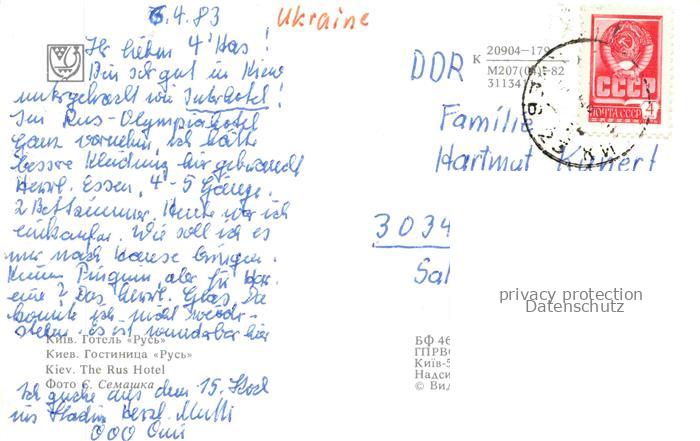 6.4.83
Ukraine
Ihr lieben 4 Has !
Bin sehr gut in Kiew
untergebracht wie Interhotel!
Im Rus-Olympiahotel
Ganz vornehm, ich hätte
bessre Kleidung hier gebraucht
Herrl. Essen, 4-5 Gänge.
2 Bettzimmer. Heute war ich
einkaufen. Wie soll ich es
nur nach Hause bringen.
aber für
eine? Das herrl. Glas, da
konnte ich nicht wieder-
stehen. Es ist wunderbar hier
Київ. Готель «Русь»
Киев. Гостиница «Русь»
Kiev. The Rus Hotel
Фото С. Семашка
Ich gucke aus dem 15. Stock
ins Stadion herzl. Mutti
OOO Omi
К 20904-179
М207(04)-82
311341
СССР
ПОЧТА СССР
4
DDR
Familie
Hartmut
3034
Sal
privacy protection
Datenschutz
БФ 46
ГПРВО
Київ-5
Надси
© Вид